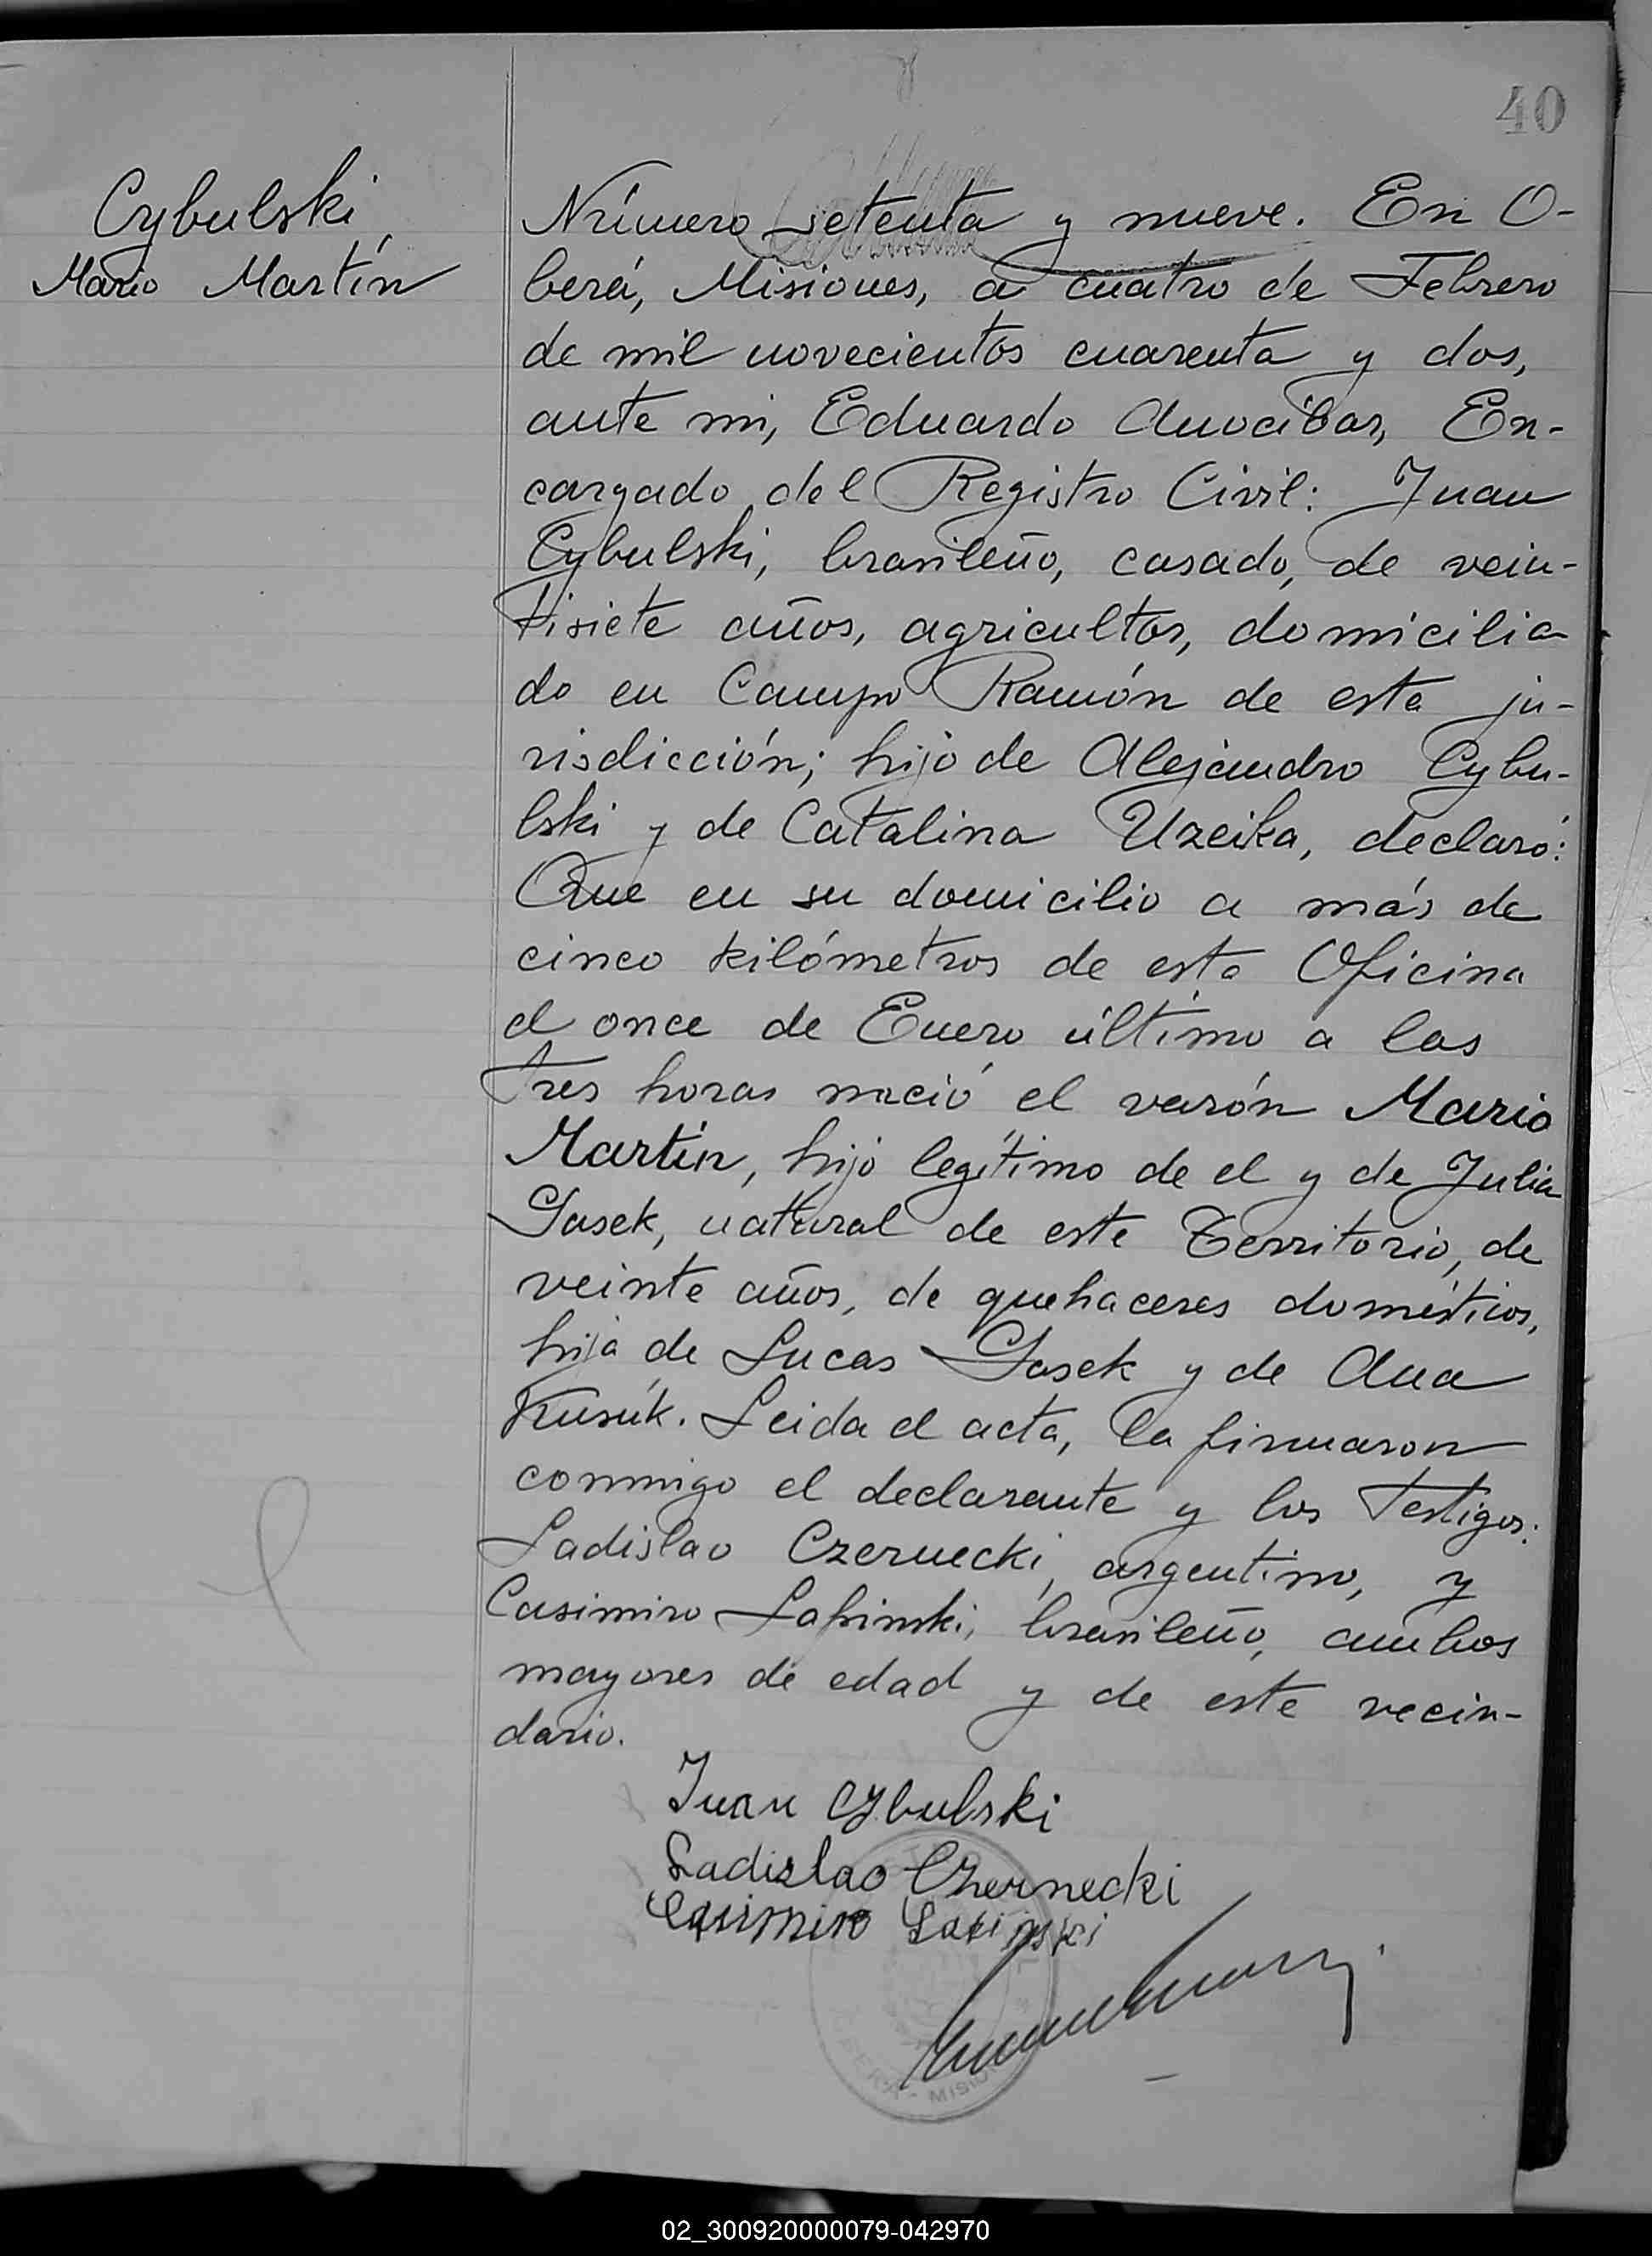 40
Cybulski
Mario Martín
Número setenta y nueve. En O-
berá, Misiones, a cuatro de Febrero
de mil novecientos cuarenta y dos,
ante mi, Eduardo Anocibar, En-
cargado del Registro Civil: Juan
Cybulski, brasileño, casado, de vein-
tisiete años, agricultor, domicilia-
do en Campo Ramón de esta ju-
risdicción; hijo de Alejandro Cybu-
lski y de Catalina Uzeika, declaró:
Que en su domicilio a más de
cinco kilómetros de esta Oficina
el once de Enero último a las
tres horas nació el varón Mario
Martín, hijo legítimo de el y de Julia
Gasek, natural de este Territorio, de
veinte años, de quehaceres domésticos,
hija de Lucas Gasek y de Ana
Kusúk. Leida el acta, la firmaron
conmigo el declarante y los testigos:
Ladislao Czernecki, argentino, y
Casimiro Lapinski, brasileño, ambos
mayores de edad y de este vecin-
dario.
Juan Cybulski
Ladislao Czernecki
Casimiro Lapinski
02_300920000079-042970